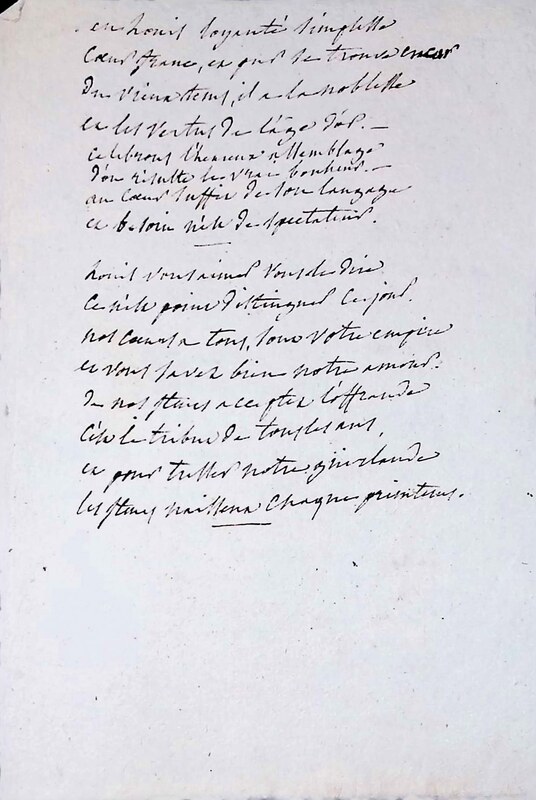 en Louis loyauté simplesse
Cœur franc, et pur se trouve encor
Du vieux tems, il a la noblesse
et les vertus de l'âge d'or. —
celebrons l'heureux assemblage
d'ou résulte le vrai bonheur. —
au cœur suffit de son langage
et besoin n'est de spectateur.
Louis vous aimer vous le dire
Ce n'est point distinguer ce jour.
nos cœurs a tous, sont votre empire
et vous savez bien notre amour.
de nos fleurs acceptez l'offrande
C'est le tribut de tous les ans,
et pour tresser notre guirlande
les fleurs naissent chaque printems.